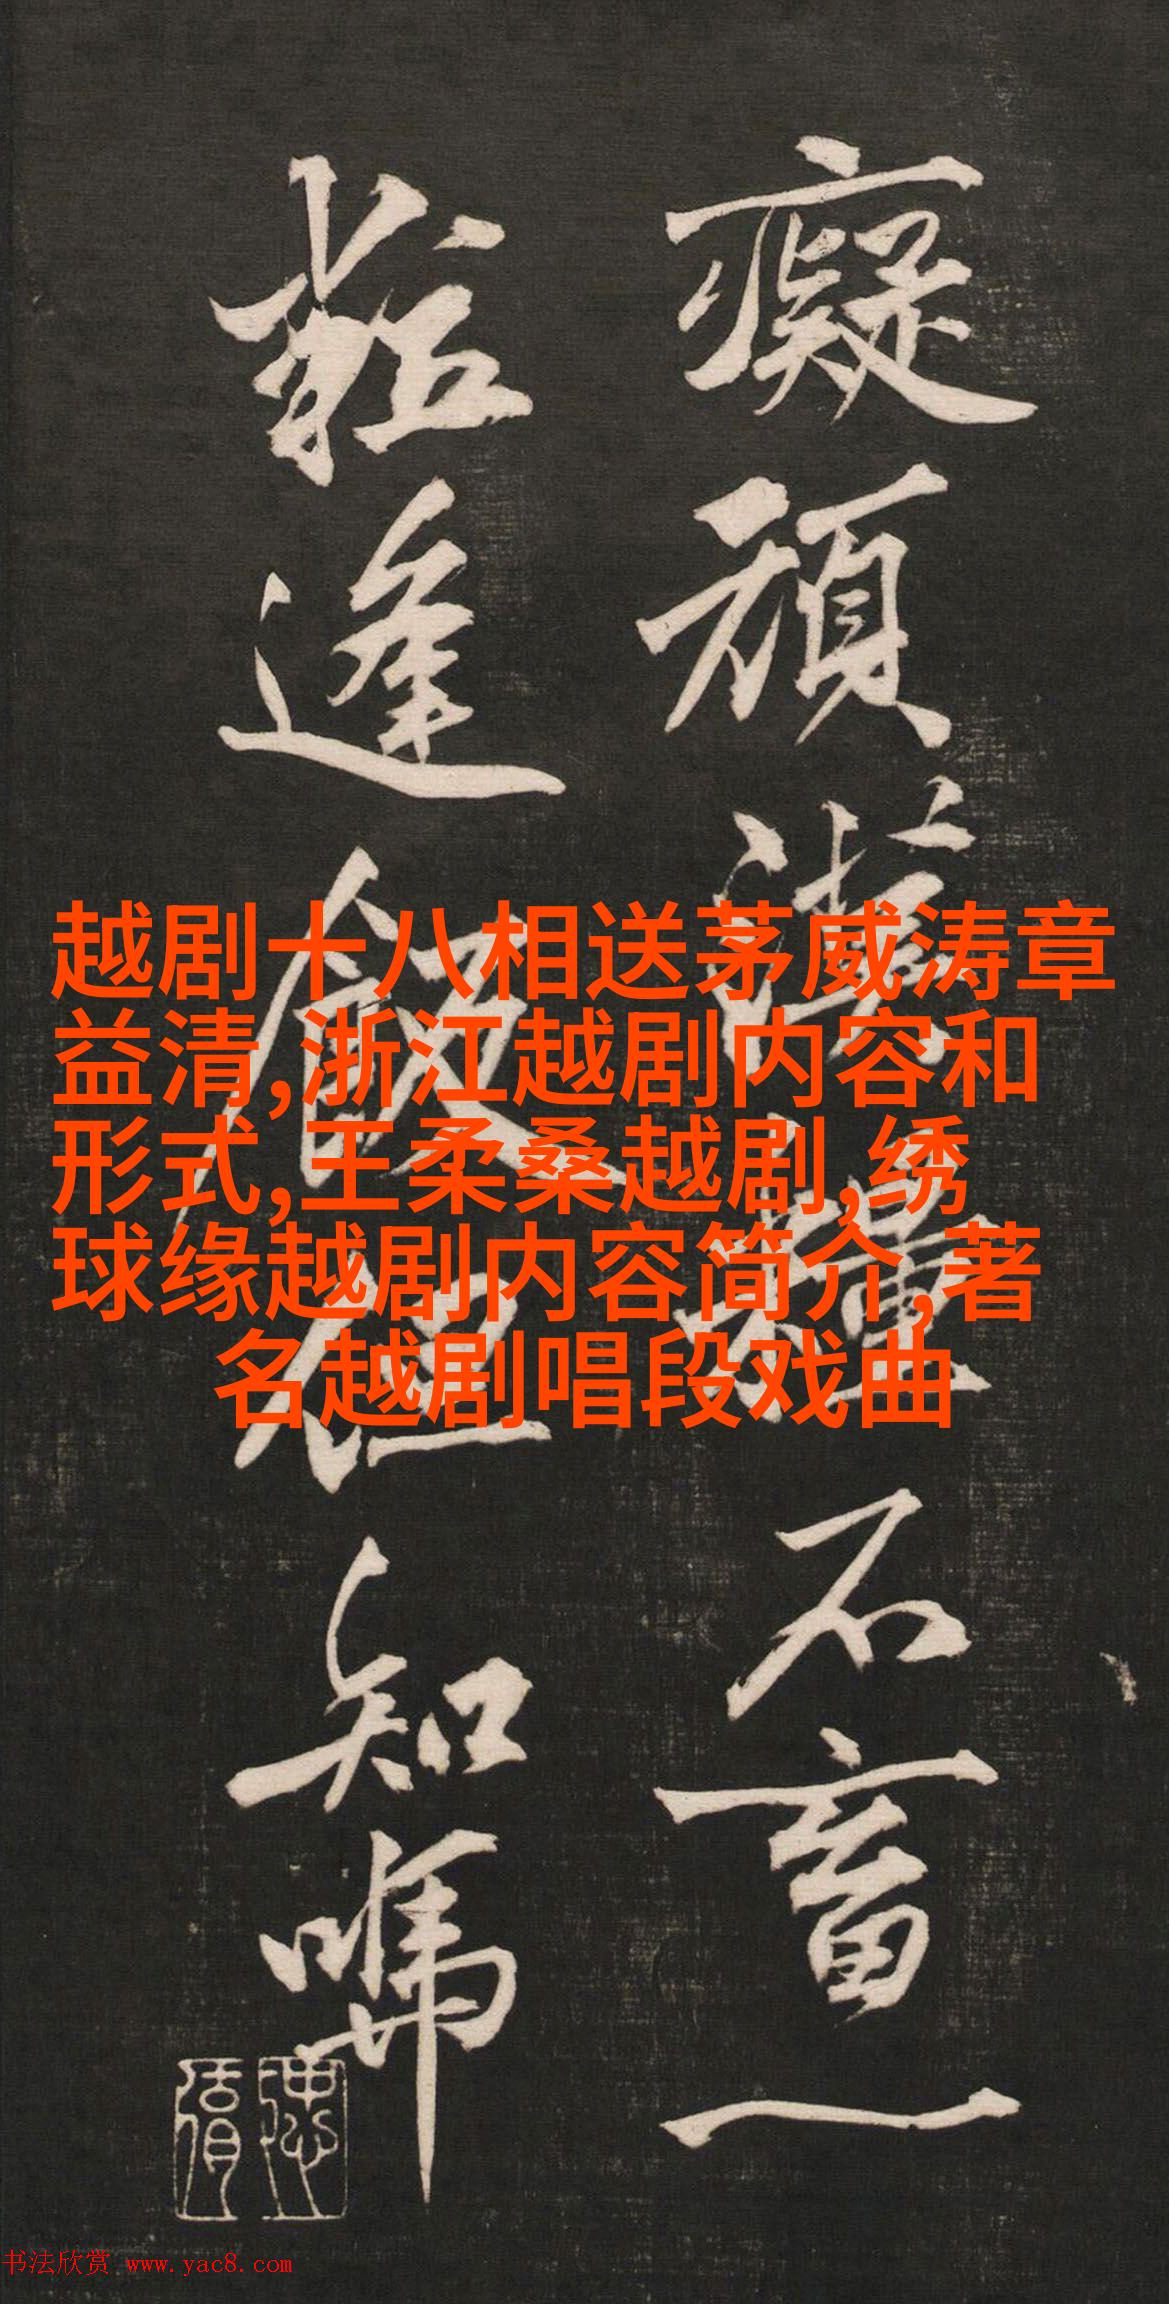 越剧十八相送茅威涛章
益清,浙江越剧内容和
形式,王柔桑越剧,绣
球缘越剧内容简介,著
名越剧唱段戏曲
癡頑畜一
逢飯但知
书法欣赏 www.yac8.com